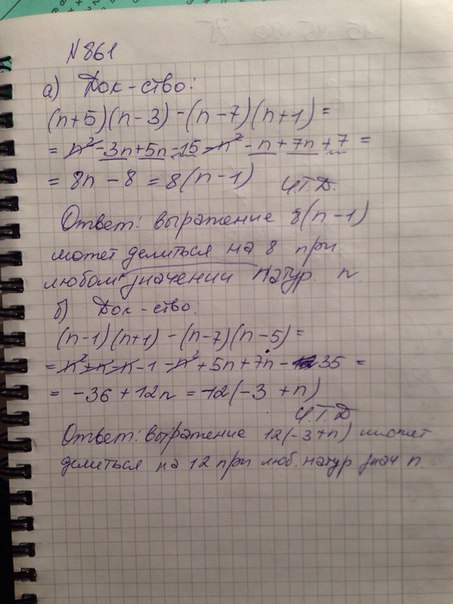 N 861
а) Док-ство:
(n+5)(n-3)-(n-7)(n+1)=
= n²-3n+5n-15-n²-n+7n+7 =
= 8n-8 = 8(n-1) Ч.Т.Д.
Ответ: выражение 8(n-1)
может делиться на 8 при
любом значении натур. n
б) Док-ство:
(n-1)(n+1)-(n-7)(n-5)=
= n²+n-n-1-n²+5n+7n-35 =
= -36+12n = 12(-3+n)
Ч.Т.Д
Ответ: выражение 12(-3+n) может
делиться на 12 при люб. натур знач n